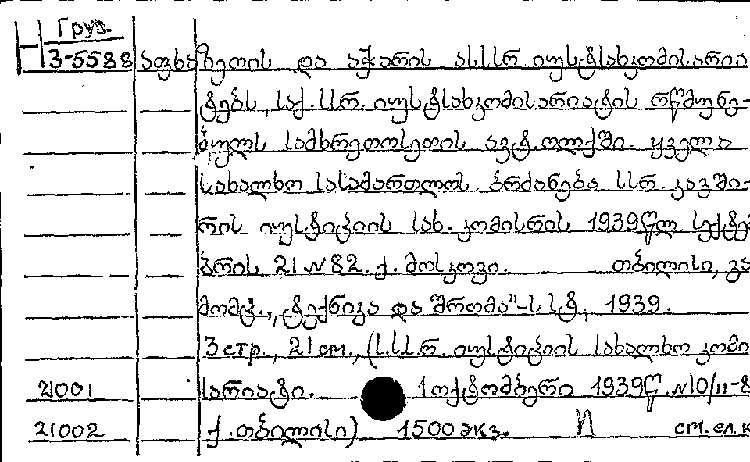 Груз.
3-5588 აფხაზეთის და აჭარის ასსრ. იუსტსახკომისარია
ტებს, საქ. სსრ. იუსტსახკომისარიატის რწმუნე-
ბულს სამხრეთოსეთის ავტ. ოლქში. ყველა
სახალხო სასამართლოს. ბრძანება სსრ. კავში-
რის იუსტიციის სახ. კომისრის 1939წლ. სექტემ
ბრის 21 N82. ქ. მოსკოვი. თბილისი, გა
მომც. „ტექნიკა და შრომა"-ს სტ., 1939.
3 стр., 21 см., (ს.ს.ს.რ. იუსტიციის სახალხო კომი
21001 სარიატი. 1 ოქტომბერი 1939წ. N10/II-8
21002 ქ. თბილისი) 1500 экз. И см. сл. к